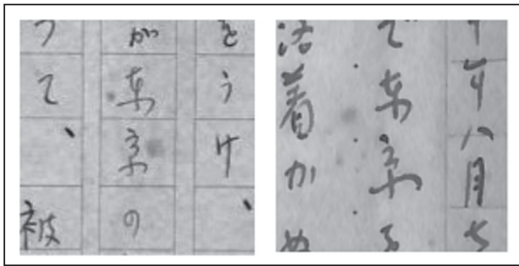 をうけ、
が東京の
つて、被
年八月
で東京
着かぬ